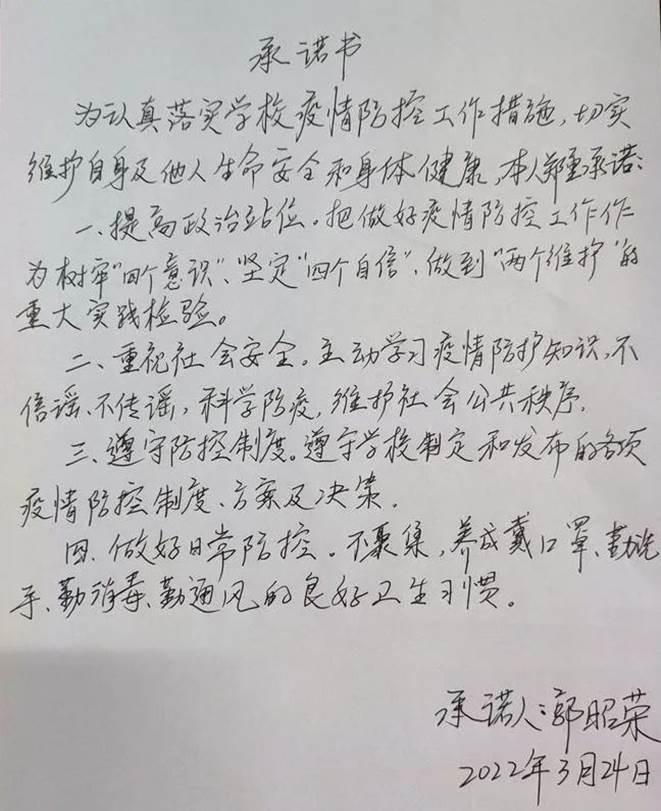 承诺书
为认真落实学校疫情防控工作措施，切实
维护自身及他人生命安全和身体健康，本人郑重承诺：
一、提高政治站位。把做好疫情防控工作作
为树牢“四个意识”、坚定“四个自信”、做到“两个维护”的
重大实践检验。
二、重视社会安全。主动学习疫情防护知识，不
信谣、不传谣，科学防疫，维护社会公共秩序。
三、遵守防控制度。遵守学校制定和发布的各项
疫情防控制度、方案及决策。
四、做好日常防控。不聚集，养成戴口罩、勤洗
手、勤消毒、勤通风的良好卫生习惯。
承诺人：郭昭荣
2022年3月24日